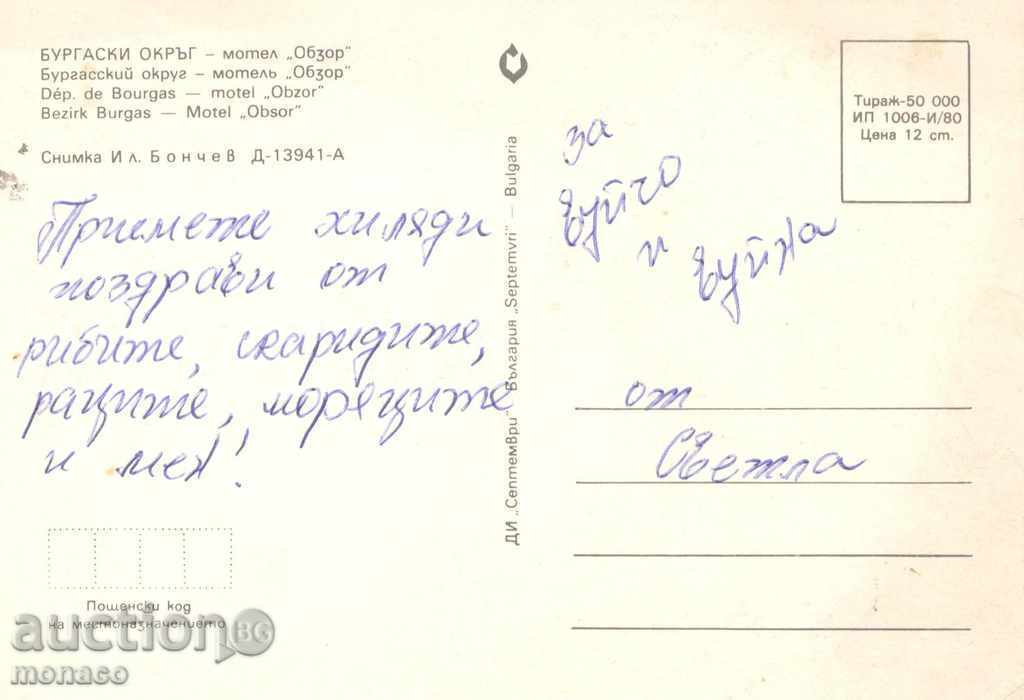 БУРГАСКИ ОКРЪГ – мотел „Обзор"
Бургасский округ – мотель „Обзор"
Dép. de Bourgas — motel „Obzor"
Bezirk Burgas — Motel „Obsor"
Снимка Ил. Бончев Д-13941-А
Приемете хиляди
поздрави от
рибите, скаридите,
раците, моряците
и мен!
Пощенски код
на местоназначението
ДИ „Септември" – България „Septemvri" – Bulgaria
Тираж-50 000
ИП 1006-И/80
Цена 12 ст.
за
вуйчо
и
вуйна
от
Светла
auction BG
monaco